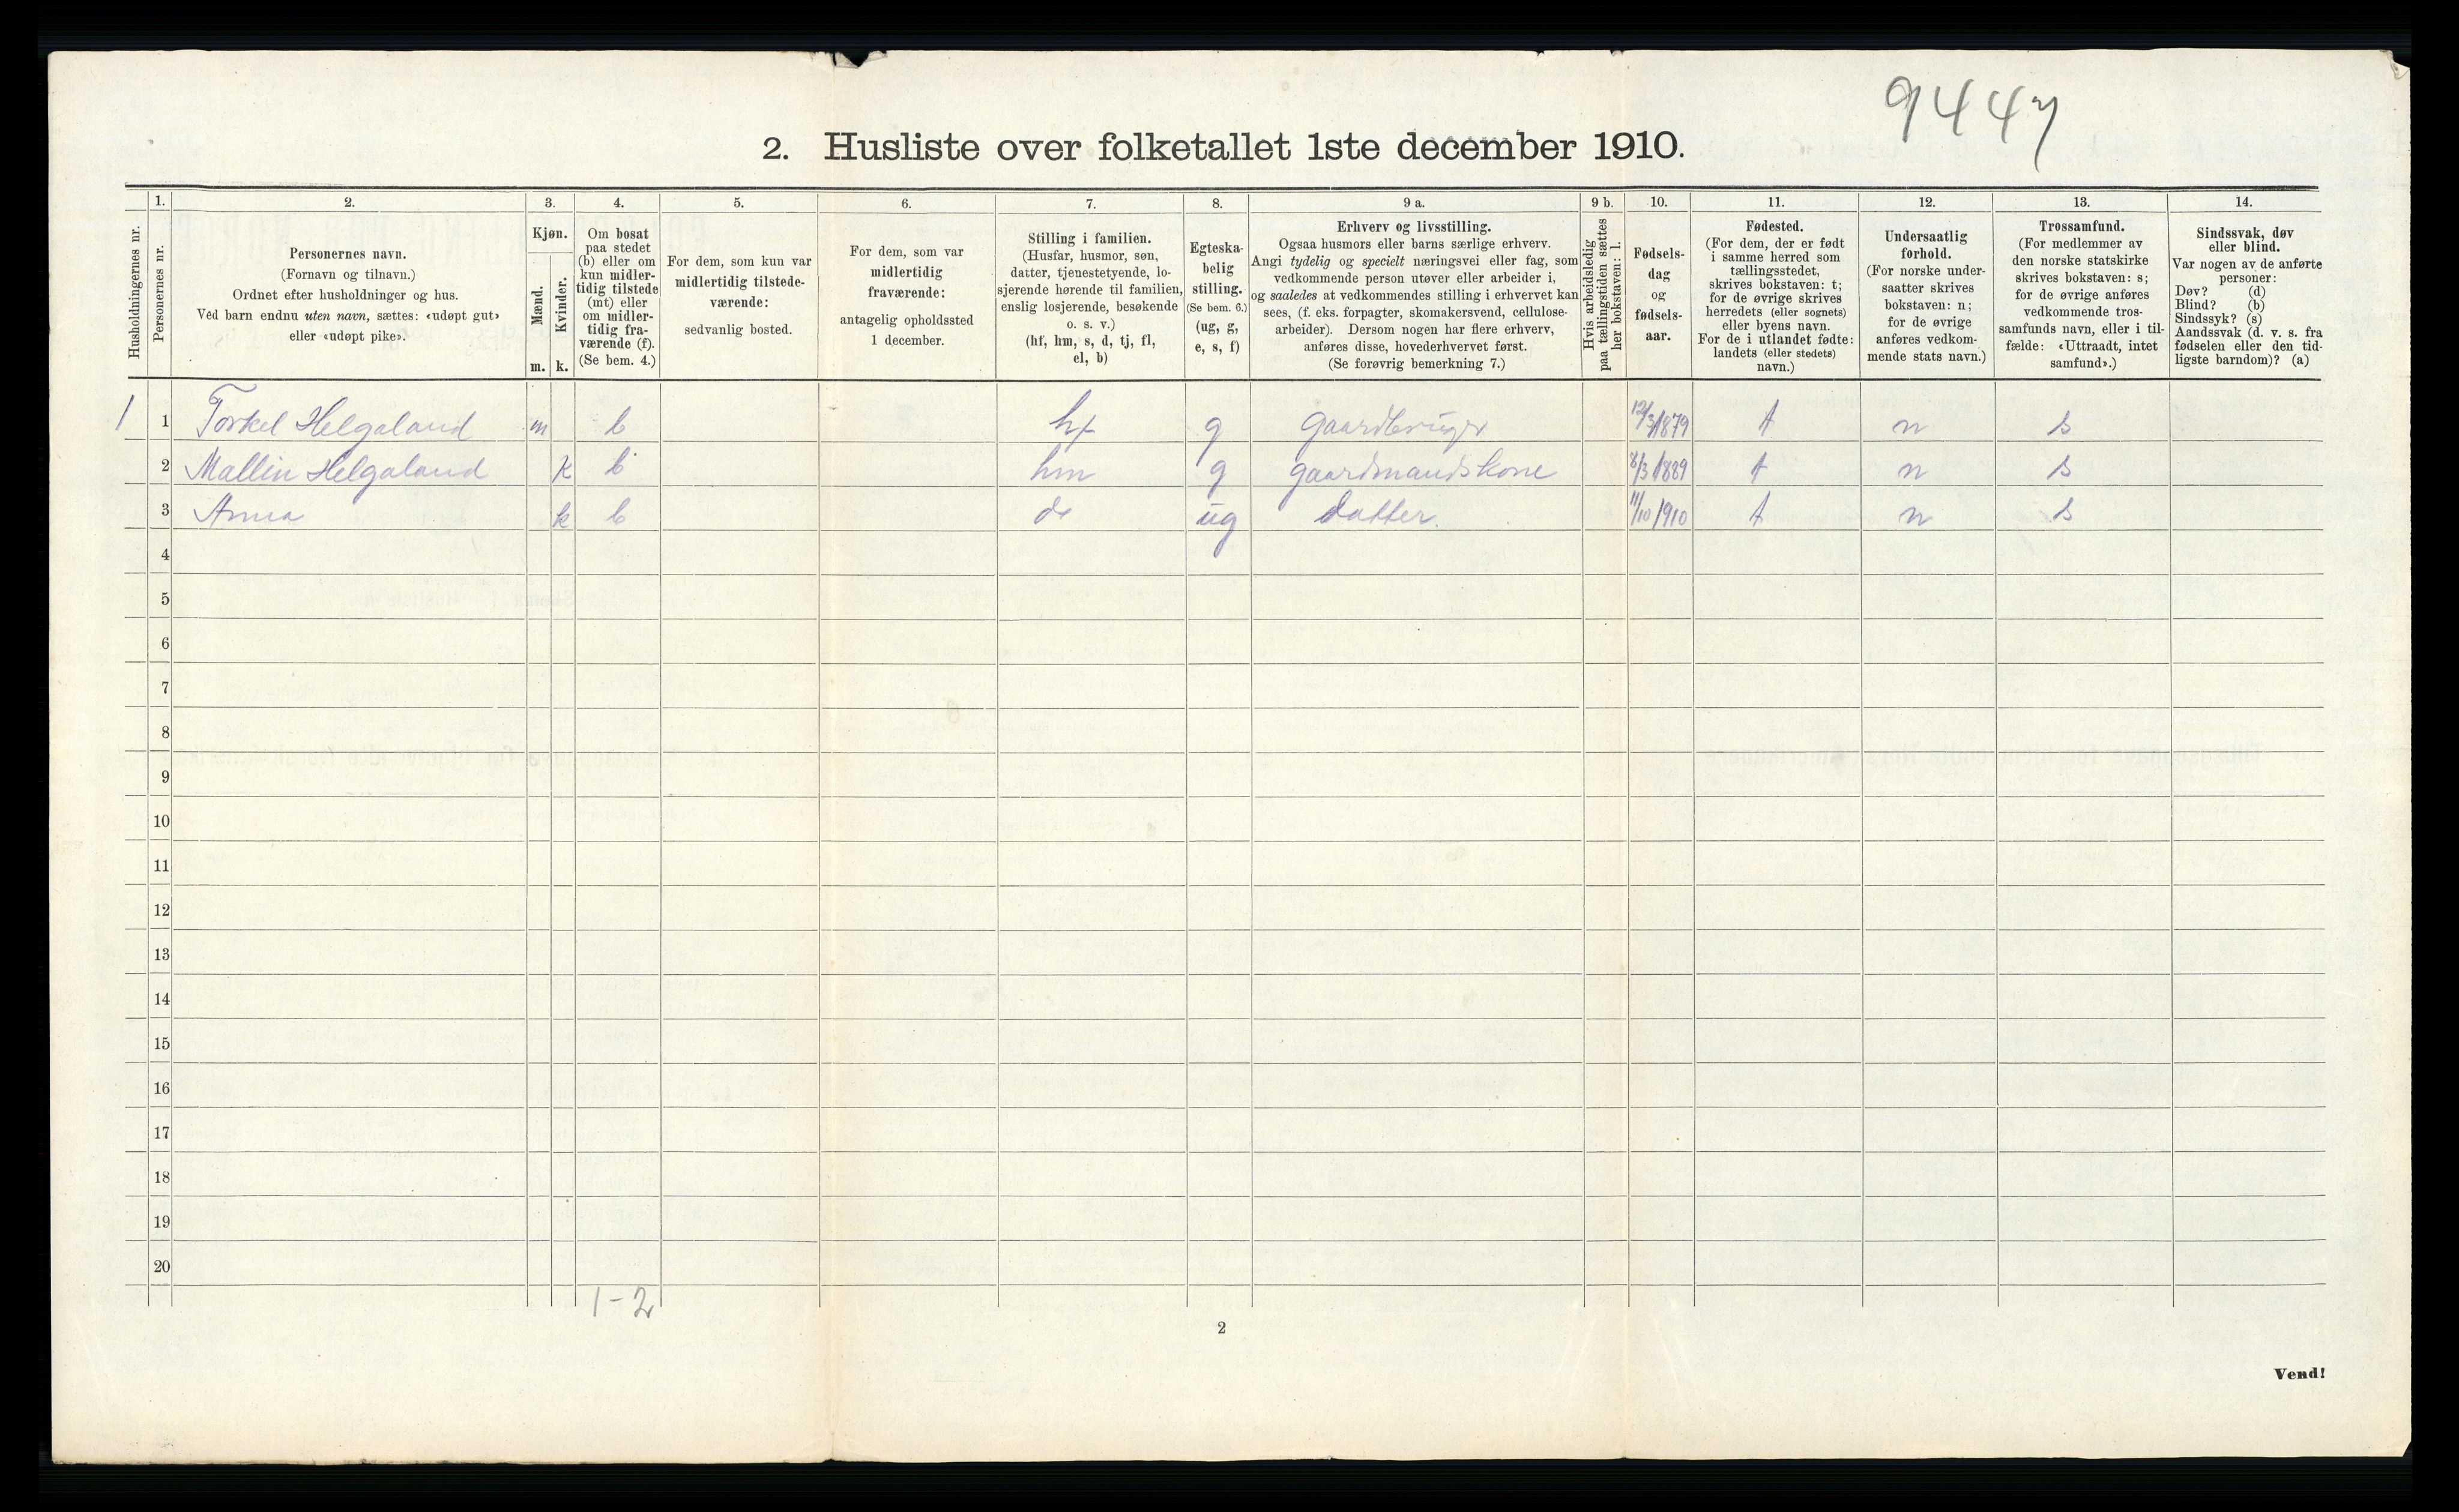 9447
2. Husliste over folketallet 1ste december 1910.
Husholdningernes nr.
1.
Personernes nr.
2.
Personernes navn.
(Fornavn og tilnavn.)
Ordnet efter husholdninger og hus.
Ved barn endnu uten navn, sættes: «udøpt gut»
eller «udøpt pike».
3.
Kjøn.
Mænd.
Kvinder.
m. k.
4.
Om bosat
paa stedet
(b) eller om
kun midler-
tidig tilstede
(mt) eller
om midler-
tidig fra-
værende (f).
(Se bem. 4.)
5.
For dem, som kun var
midlertidig tilstede-
værende:
sedvanlig bosted.
6.
For dem, som var
midlertidig
fraværende:
antagelig opholdssted
1 december.
7.
Stilling i familien.
(Husfar, husmor, søn,
datter, tjenestetyende, lo-
sjerende hørende til familien,
enslig losjerende, besøkende
o. s. v.)
(hf, hm, s, d, tj, fl,
el, b)
8.
Egteska-
belig
stilling.
(Se bem. 6.)
(ug, g,
e, s, f)
9 a.
Erhverv og livsstilling.
Ogsaa husmors eller barns særlige erhverv.
Angi tydelig og specielt næringsvei eller fag, som
vedkommende person utøver eller arbeider i,
og saaledes at vedkommendes stilling i erhvervet kan
sees, (f. eks. forpagter, skomakersvend, cellulose-
arbeider). Dersom nogen har flere erhverv,
anføres disse, hovederhvervet først.
(Se forøvrig bemerkning 7.)
9 b.
Hvis arbeidsledig
paa tællingstiden sættes
her bokstaven: l.
10.
Fødsels-
dag
og
fødsels-
aar.
11.
Fødested.
(For dem, der er født
i samme herred som
tællingsstedet,
skrives bokstaven: t;
for de øvrige skrives
herredets (eller sognets)
eller byens navn.
For de i utlandet fødte:
landets (eller stedets)
navn.)
12.
Undersaatlig
forhold.
(For norske under-
saatter skrives
bokstaven: n;
for de øvrige
anføres vedkom-
mende stats navn.)
13.
Trossamfund.
(For medlemmer av
den norske statskirke
skrives bokstaven: s;
for de øvrige anføres
vedkommende tros-
samfunds navn, eller i til-
fælde: «Uttraadt, intet
samfund».)
14.
Sindssvak, døv
eller blind.
Var nogen av de anførte
personer:
Døv? (d)
Blind? (b)
Sindssyk? (s)
Aandssvak (d. v. s. fra
fødselen eller den tid-
ligste barndom)? (a)
1 1 Torkel Helgaland m b hf g gaardbruger 12/3 1879 t n s
2 Mallin Helgaland k b hm g gaardmandskone 8/3 1889 t n s
3 Anna k b da ug datter. 11/10 1910 t n s
4
5
6
7
8
9
10
11
12
13
14
15
16
17
18
19
20
1-2
2
Vend!